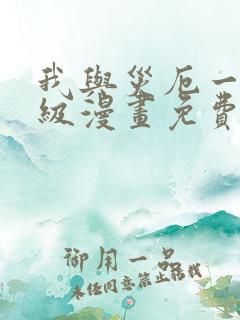 我與災厄一
級漫畫免費
御用一品
未经同意禁止转载